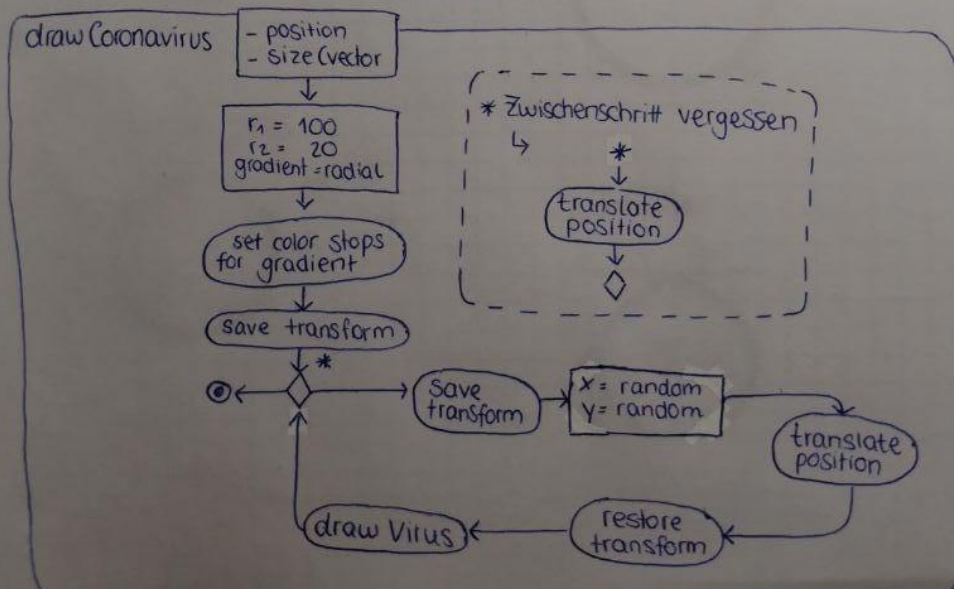 draw Coronavirus
- position
- size (vector
r₁ = 100
r₂ = 20
gradient = radial
set color stops
for gradient
save transform
*
* Zwischenschritt vergessen
↳
*
translate
position
save
transform
x = random
y = random
translate
position
restore
transform
draw Virus